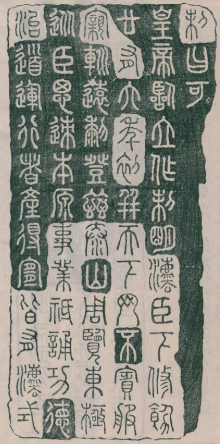 制曰可
皇帝臨立作制明灋臣下修飭
廿有六年初并天下罔不賓服
寴遠黎登茲泰山周覽東極
從臣思迹本原事業祗誦功德
治道運行者產得宜皆有灋式